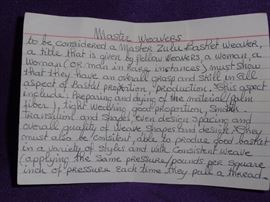 Master Weavers
to be considered a Master Zulu Basket Weaver,
a title that is given by fellow weavers, a woman, a
woman (or man in rare instances) must show
that they have an overall grasp and skill in all
aspect of basket preparation, production. This aspect
include: Preparing and dying of the material (palm
fiber), tight weaving, good proportion, smooth
transition and shapes, even design spacing and
overall quality of weave shapes and design. They
must also be consistent, able to produce good basket
in a variety of styles and with consistent weave
(applying the same pressure/pounds per square
inch of pressure each time they pull a thread.